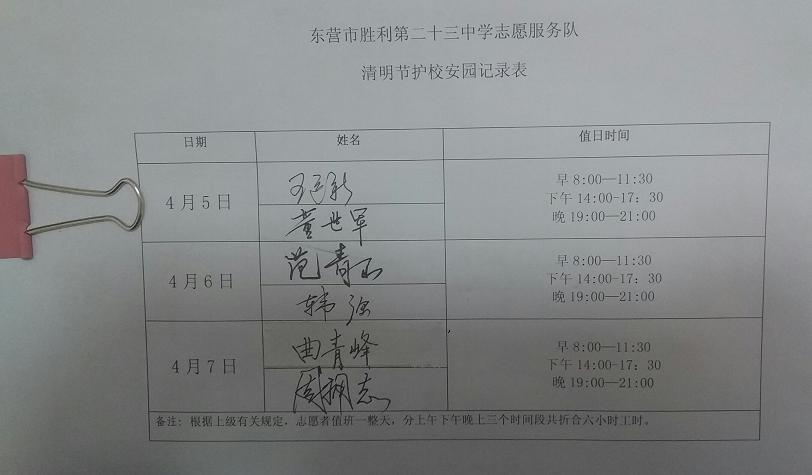 东营市胜利第二十三中学志愿服务队
清明节护校安园记录表
日期 姓名 值日时间
4月5日
董世军
早 8:00—11:30
下午 14:00-17：30
晚 19:00—21:00
4月6日
范青石
韩强
早 8:00—11:30
下午 14:00-17：30
晚 19:00—21:00
4月7日
曲青峰
早 8:00—11:30
下午 14:00-17：30
晚 19:00—21:00
备注: 根据上级有关规定，志愿者值班一整天，分上午下午晚上三个时间段共折合六小时工时。